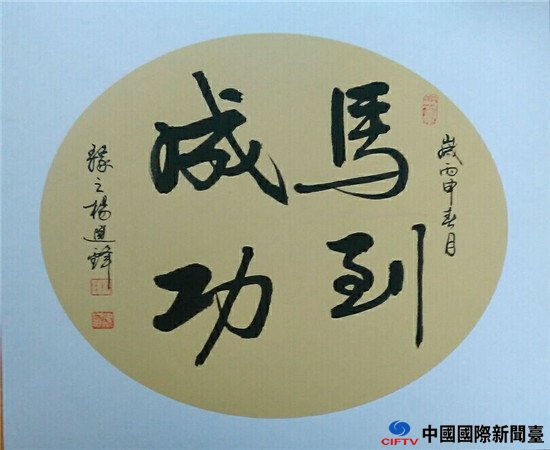 馬到
成功
歲丙申春月
楊進鋒
CIFTV 中國國際新聞臺